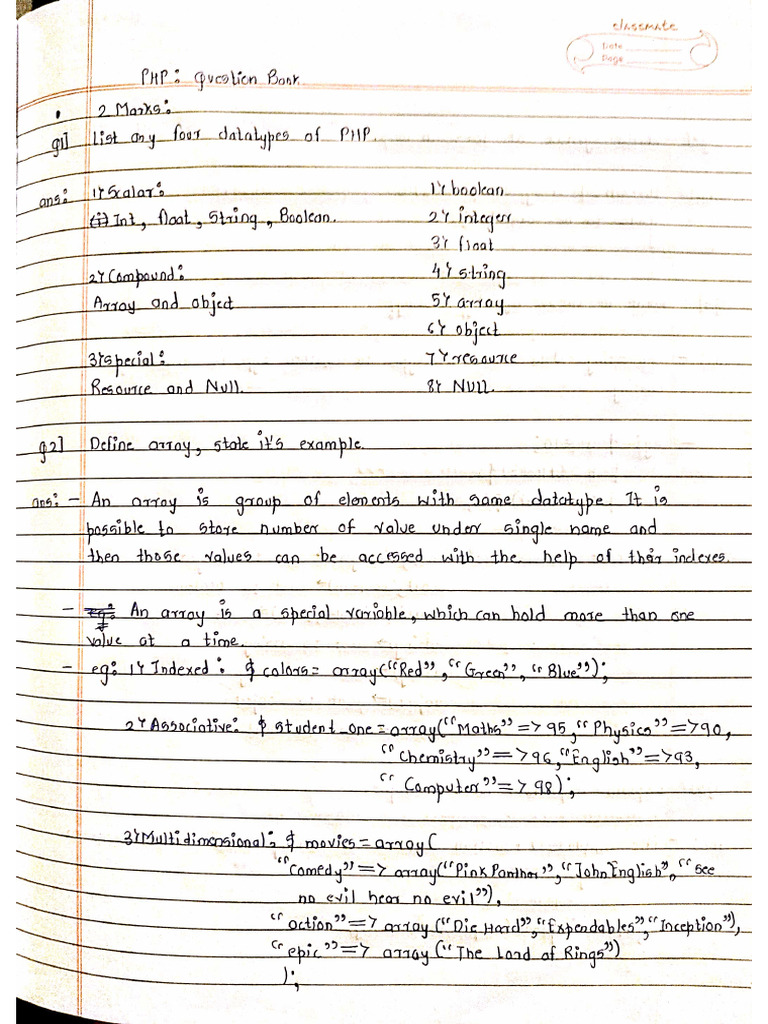 classmate
Date
Page
PHP: Question Bank
• 2 Marks:
Q1] List any four datatypes of PHP.
ans: 1} Scalar:
(i) Int, float, String, Boolean.
2} Compound:
Array and object
3} special:
Resource and Null.
1} boolean
2} integer
3} float
4} string
5} array
6} object
7} resource
8} NUll.
Q2] Define array, state it's example.
ans: - An array is group of elements with same datatype. It is
possible to store number of value under single name and
then those values can be accessed with the help of their indexes.
- eg: An array is a special variable, which can hold more than one
value at a time.
- eg: 1} Indexed: $ colors = array("Red", "Green", "Blue");
2} Associative: $ student_one = array("Maths" => 95, "Physics" => 90,
"Chemistry" => 96, "English" => 93,
"Computer" => 98);
3} Multidimensional: $ movies = array(
"comedy" => array("Pink Panther", "John English", "See
no evil hear no evil"),
"action" => array ("Die Hard", "Expendables", "Inception"),
"epic" => array ("The Lord of Rings")
);